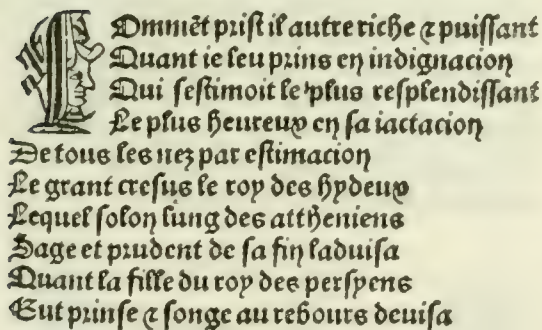 COmmēt priſt il autre riche ⁊ puiſſant
Quant ie leu prins en indignacion
Qui ſeſtimoit le plus reſplendiſſant
Le plus heureux en ſa iactacion
De tous les nez par eſtimacion
Le grant creſus le roy des hydeux
Lequel ſolon lung des attheniens
Sage et prudent de ſa fin laduiſa
Quant la fille du roy des perſyens
Eut prinſe ⁊ ſonge au rebours deuiſa